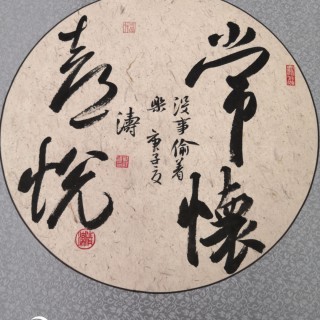 常懷
喜悅
没事偷着
樂 庚子夏
濤